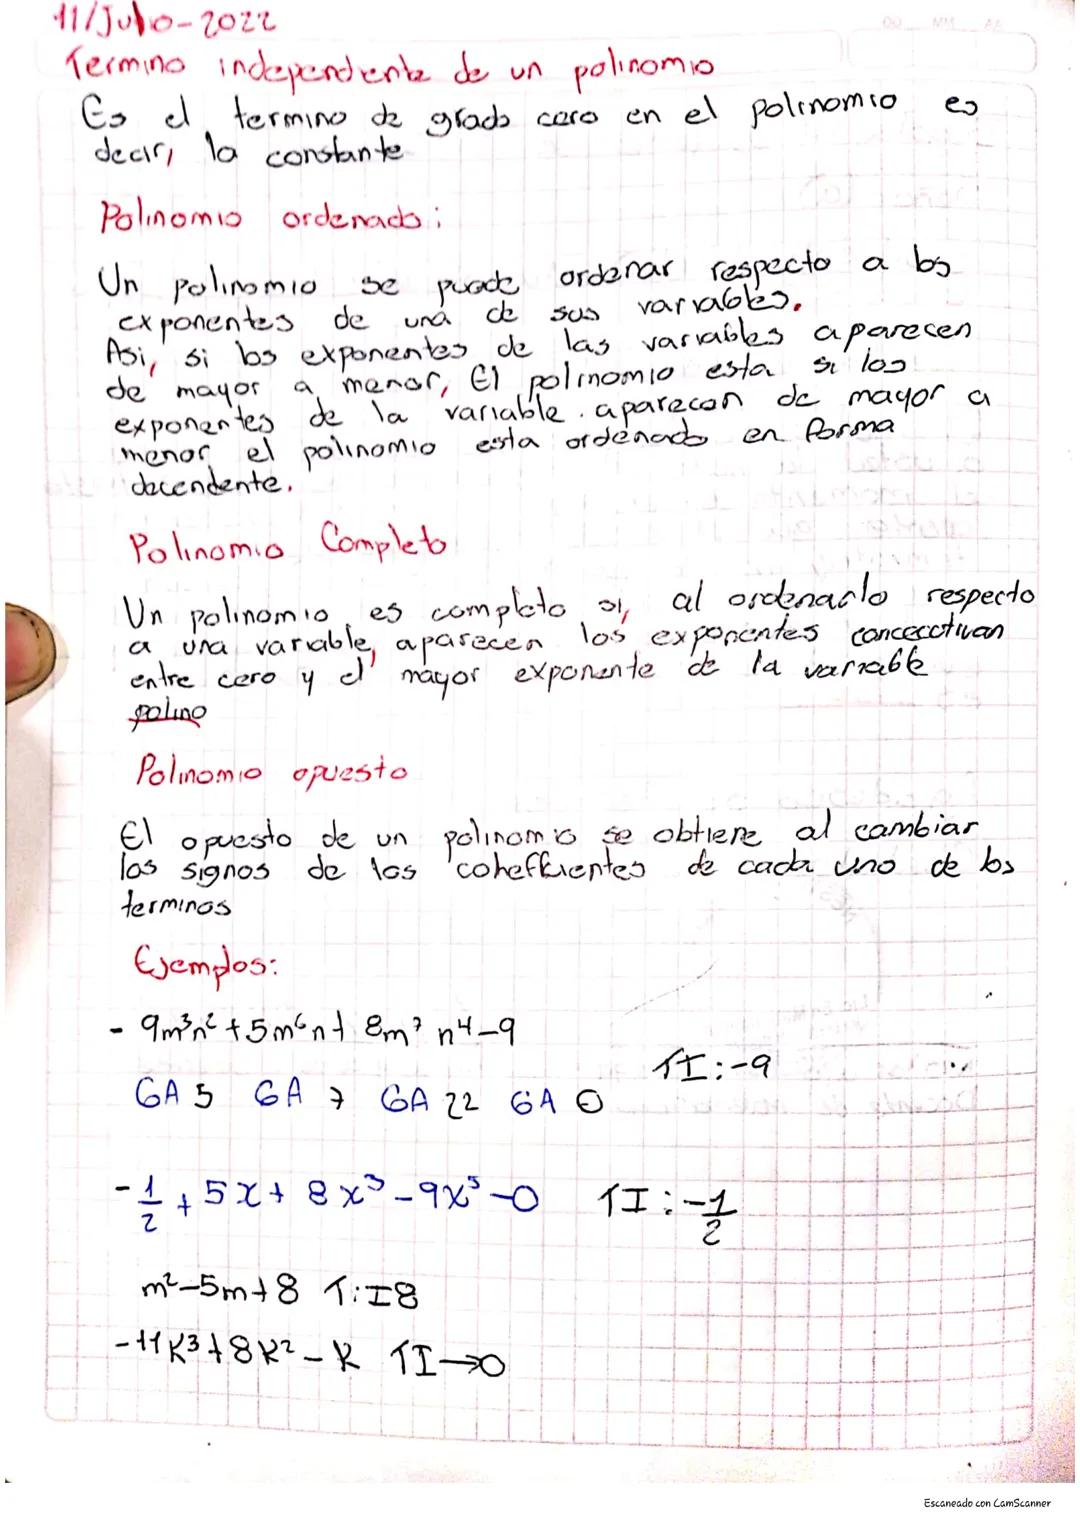 11/Julio-2022
Termino independiente de un polinomio
Es el termino de grado cero en el polinomio es
decir, la constante
Polinomio ordenado:
Un polinomio se puede ordenar respecto a los
exponentes de una de sus variables.
Asi, si los exponentes de las variables aparecen
de mayor a menor, El polinomio esta si los
exponentes de la variable. aparecen de mayor a
menor el polinomio esta ordenado en forma
decendente.
Polinomio Completo
Un polinomio es completo si, al ordenarlo respecto
a una variable, aparecen los exponentes concecctivan
entre cero y el mayor exponente de la variable
polino
Polinomio opuesto
El opuesto de un polinomio se obtiene al cambiar
los signos de los coheffientes de cada uno de los
terminos
Ejemplos:
- 9m³n² + 5m⁶n + 8m⁷ n⁴ - 9
TI: -9
GA 5 GA 7 GA 22 GA 0
-1/2 + 5x + 8x³ - 9x⁵ - 0 TI: -1/2
m² - 5m + 8 T:I8
-11k³ + 8k² - k TI→0
Escaneado con CamScanner